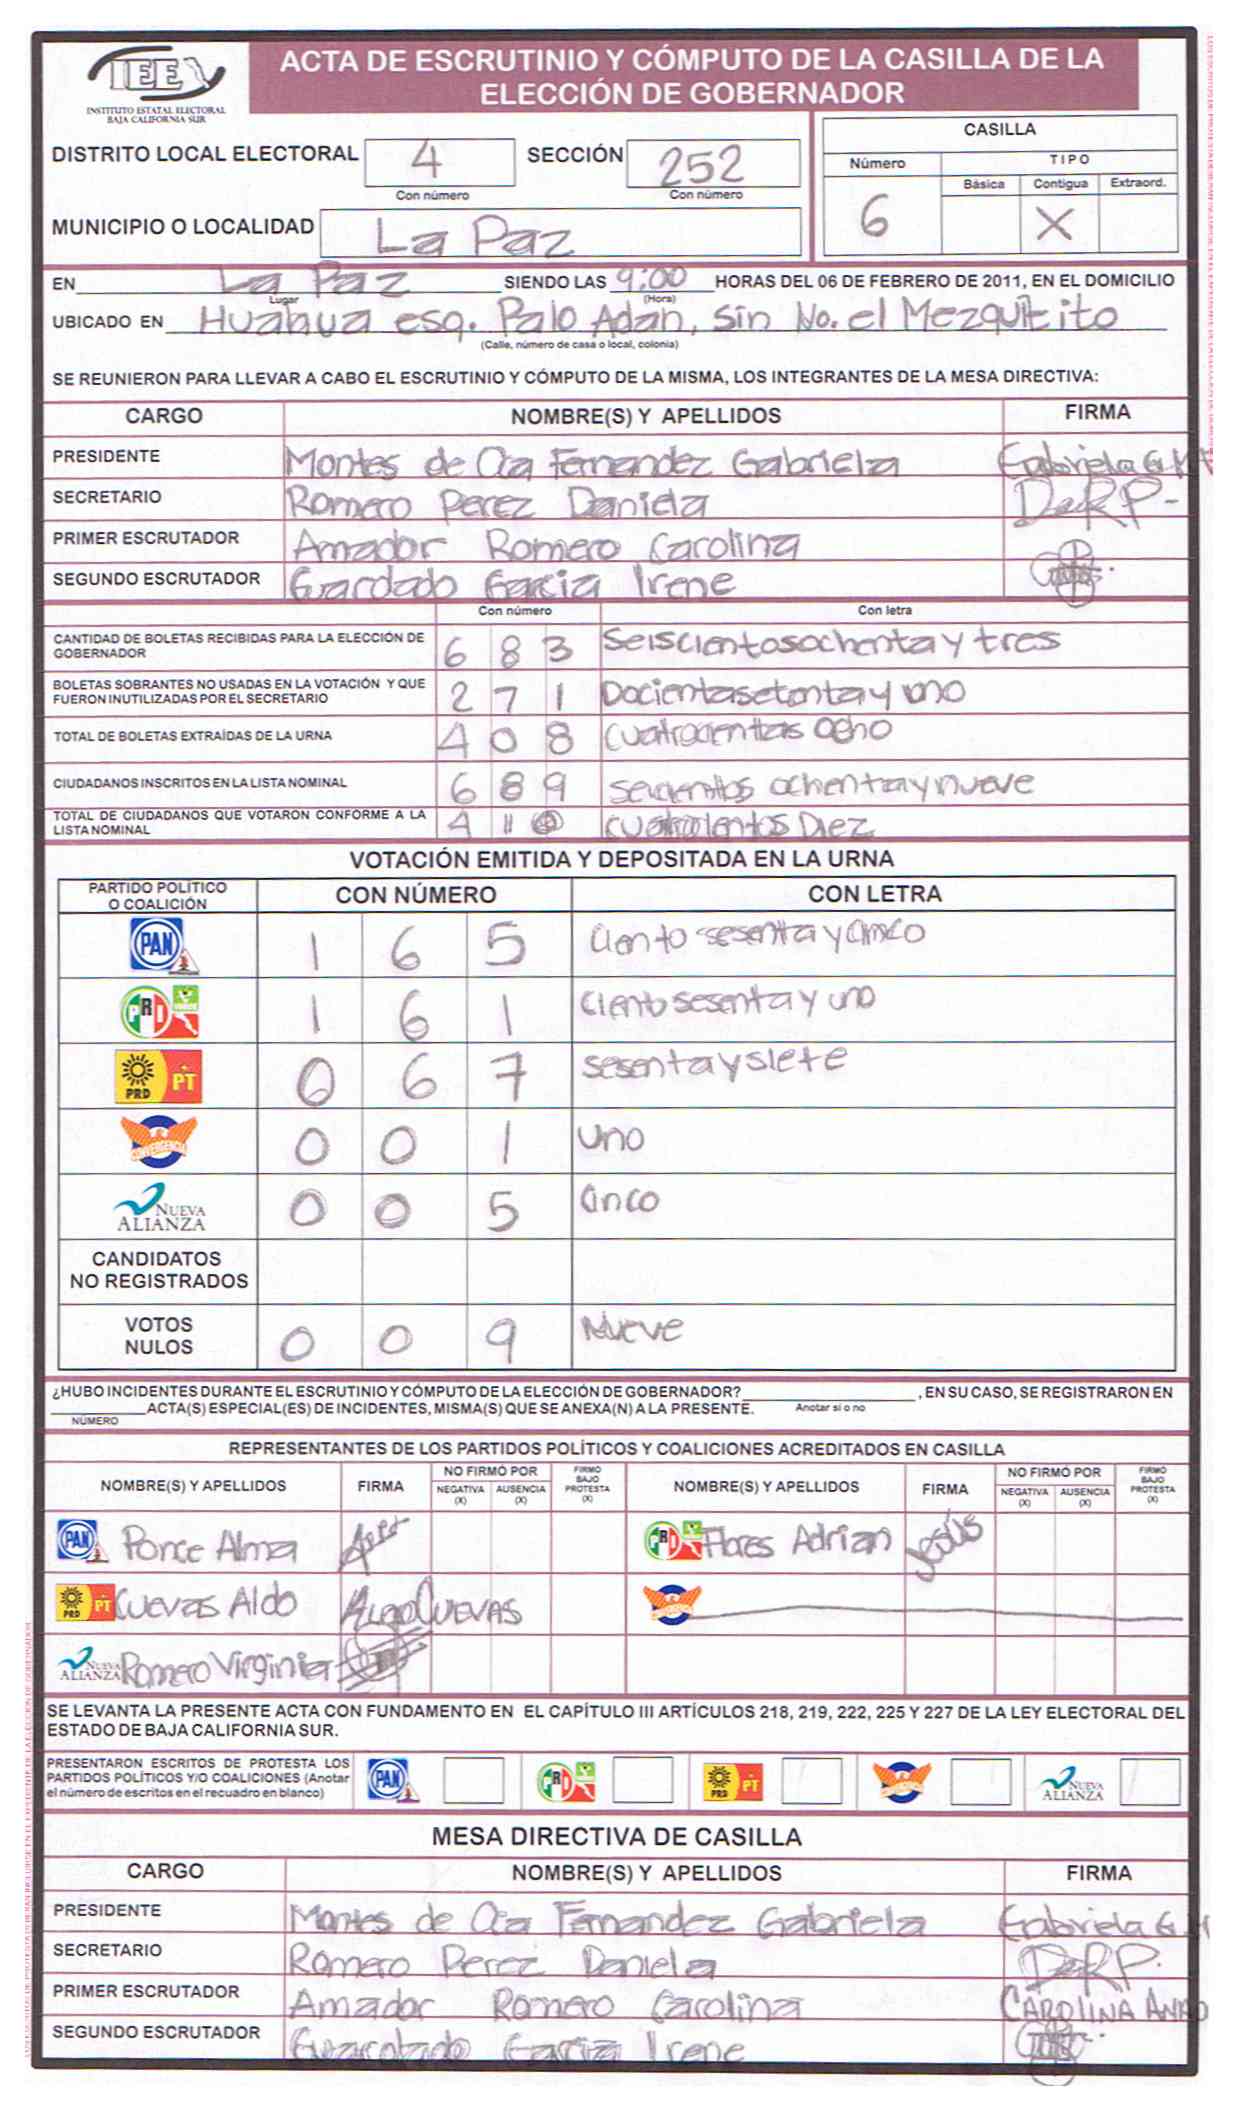 ACTA DE ESCRUTINIO Y CÓMPUTO DE LA CASILLA DE LA
ELECCIÓN DE GOBERNADOR
INSTITUTO ESTATAL ELECTORAL
BAJA CALIFORNIA SUR
DISTRITO LOCAL ELECTORAL 4 SECCIÓN 252
Con número Con número
MUNICIPIO O LOCALIDAD La Paz
CASILLA
Número TIPO
Básica Contigua Extraord.
6 X
EN La Paz SIENDO LAS 9:00 HORAS DEL 06 DE FEBRERO DE 2011, EN EL DOMICILIO
Lugar (Hora)
UBICADO EN Huahua esq. Palo Adan, Sin No. el Mezquitito
(Calle, número de casa o local, colonia)
SE REUNIERON PARA LLEVAR A CABO EL ESCRUTINIO Y CÓMPUTO DE LA MISMA, LOS INTEGRANTES DE LA MESA DIRECTIVA:
CARGO NOMBRE(S) Y APELLIDOS FIRMA
PRESIDENTE Montes de Oca Fernandez Gabriela Gabriela G.
SECRETARIO Romero Perez Daniela
PRIMER ESCRUTADOR Amador Romero Carolina
SEGUNDO ESCRUTADOR Guardado Garcia Irene
Con número Con letra
CANTIDAD DE BOLETAS RECIBIDAS PARA LA ELECCIÓN DE
GOBERNADOR 6 8 3 Seiscientosochenta y tres
BOLETAS SOBRANTES NO USADAS EN LA VOTACIÓN Y QUE
FUERON INUTILIZADAS POR EL SECRETARIO 2 7 1 Docientasetenta y uno
TOTAL DE BOLETAS EXTRAÍDAS DE LA URNA 4 0 8 cuatrocientas ocho
CIUDADANOS INSCRITOS EN LA LISTA NOMINAL 6 8 9 seicientos ochenta y nueve
TOTAL DE CIUDADANOS QUE VOTARON CONFORME A LA
LISTA NOMINAL 4 1 0 cuatrocientos Diez
VOTACIÓN EMITIDA Y DEPOSITADA EN LA URNA
PARTIDO POLÍTICO
O COALICIÓN CON NÚMERO CON LETRA
PAN 1 6 5 Ciento sesenta y cinco
PRI 1 6 1 Ciento sesenta y uno
PRD PT 0 6 7 sesenta y siete
CONVERGENCIA 0 0 1 uno
NUEVA ALIANZA 0 0 5 cinco
CANDIDATOS
NO REGISTRADOS
VOTOS
NULOS 0 0 9 Nueve
¿HUBO INCIDENTES DURANTE EL ESCRUTINIO Y CÓMPUTO DE LA ELECCIÓN DE GOBERNADOR? , EN SU CASO, SE REGISTRARON EN
ACTA(S) ESPECIAL(ES) DE INCIDENTES, MISMA(S) QUE SE ANEXA(N) A LA PRESENTE. Anotar si o no
NÚMERO
REPRESENTANTES DE LOS PARTIDOS POLÍTICOS Y COALICIONES ACREDITADOS EN CASILLA
NOMBRE(S) Y APELLIDOS FIRMA NO FIRMÓ POR NEGATIVA (X) AUSENCIA (X) FIRMÓ BAJO PROTESTA (X) NOMBRE(S) Y APELLIDOS FIRMA NO FIRMÓ POR NEGATIVA (X) AUSENCIA (X) FIRMÓ BAJO PROTESTA (X)
PAN Ponce Alma PRI Flores Adrian Jesús
PRD PT Cuevas Aldo Aldo Cuevas
NUEVA ALIANZA Romero Virginia
SE LEVANTA LA PRESENTE ACTA CON FUNDAMENTO EN EL CAPÍTULO III ARTÍCULOS 218, 219, 222, 225 Y 227 DE LA LEY ELECTORAL DEL
ESTADO DE BAJA CALIFORNIA SUR.
PRESENTARON ESCRITOS DE PROTESTA LOS
PARTIDOS POLÍTICOS Y/O COALICIONES (Anotar
el número de escritos en el recuadro en blanco) PAN PRI PRD PT NUEVA ALIANZA
MESA DIRECTIVA DE CASILLA
CARGO NOMBRE(S) Y APELLIDOS FIRMA
PRESIDENTE Montes de Oca Fernandez Gabriela Gabriela G.
SECRETARIO Romero Perez Daniela
PRIMER ESCRUTADOR Amador Romero Carolina CAROLINA
SEGUNDO ESCRUTADOR Guardado Garcia Irene